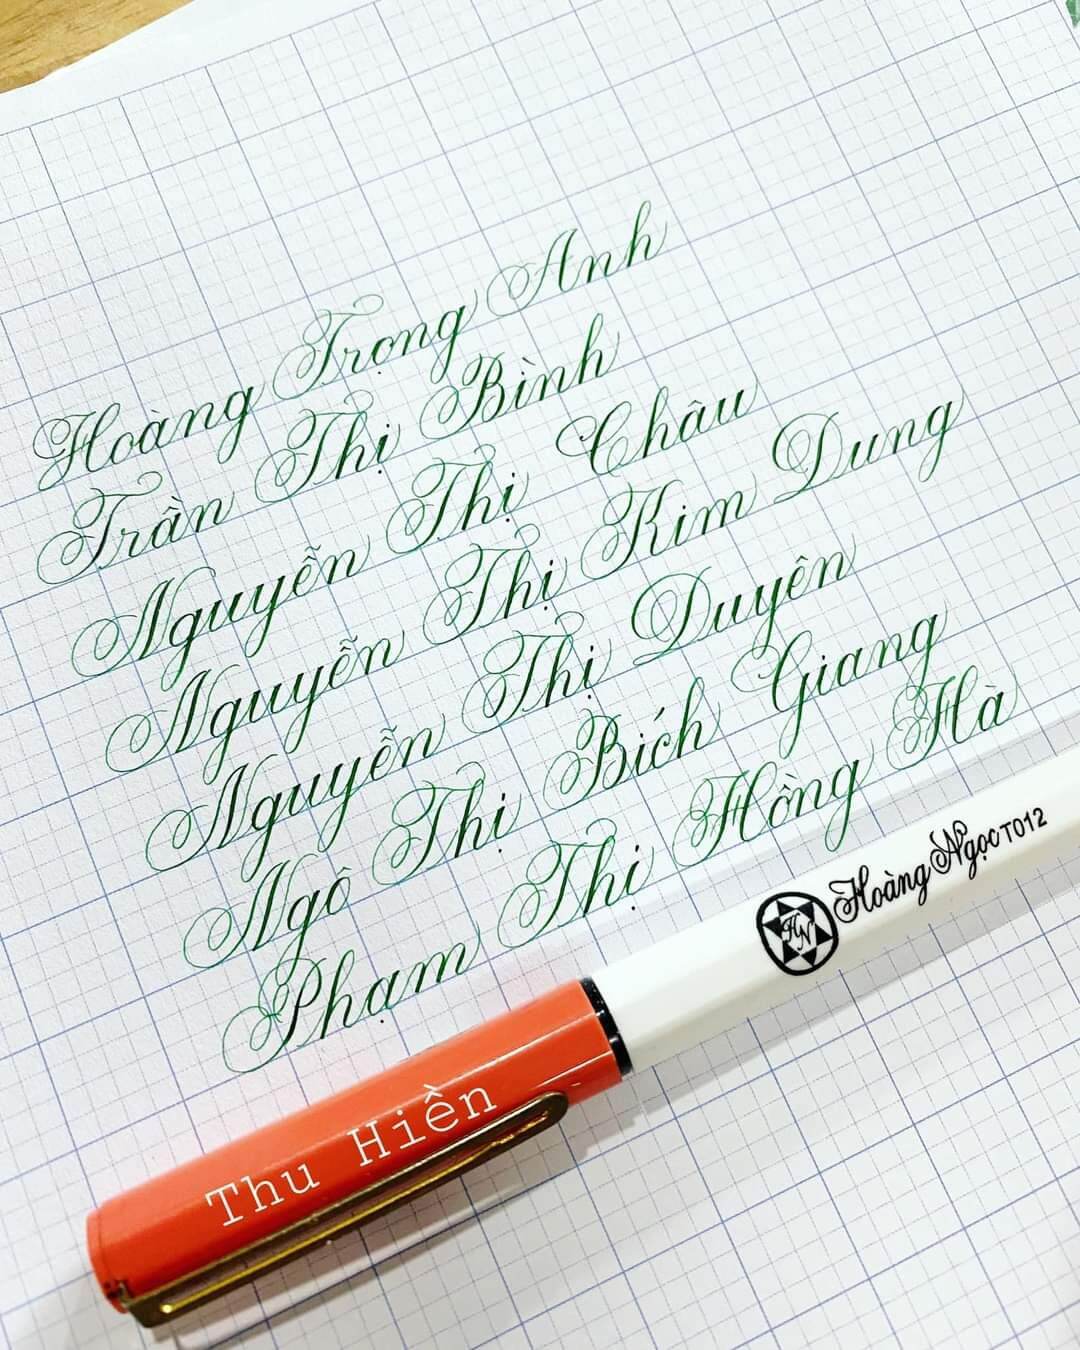 Hoàng Trọng Anh
Trần Thị Bình
Nguyễn Thị Châu
Nguyễn Thị Kim Dung
Nguyễn Thị Duyên
Ngô Thị Bích Giang
Phạm Thị Hồng Hà
HN Hoàng Ngọc T012
Thu Hiền